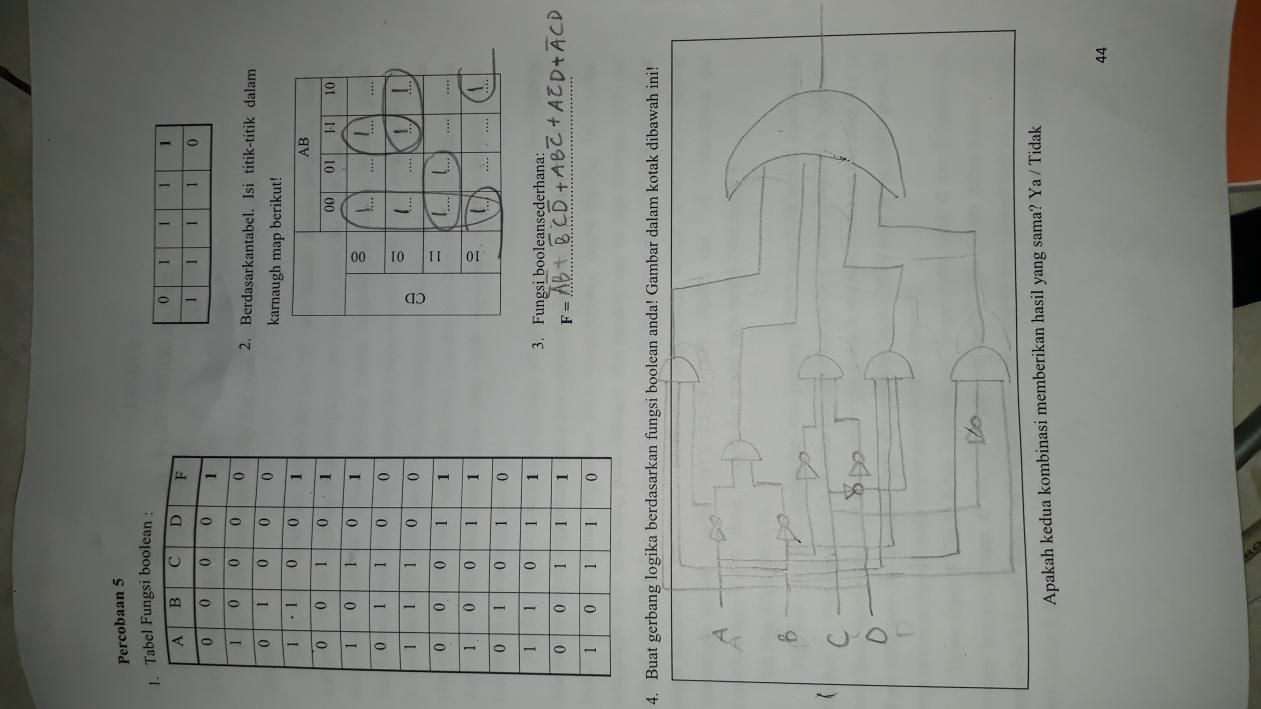 Percobaan 5
1. Tabel Fungsi boolean :
A B C D F
0 0 0 0 1
1 0 0 0 0
0 1 0 0 0
1 1 0 0 1
0 0 1 0 1
1 0 1 0 1
0 1 1 0 0
1 1 1 0 0
0 0 0 1 1
1 0 0 1 1
0 1 0 1 0
1 1 0 1 1
0 0 1 1 1
1 0 1 1 0
0 1 1 1 1
1 1 1 1 0
2. Berdasarkantabel. Isi titik-titik dalam
karnaugh map berikut!
AB
00 01 11 10
CD
00 1... .... 1... ....
01 1... .... 1... 1...
11 1... 1... .... ....
10 1... .... .... 1...
3. Fungsi booleansederhana:
F = A̅B̅ + B̅CD̅ + ABC̅ + AC̅D + A̅CD
4. Buat gerbang logika berdasarkan fungsi boolean anda! Gambar dalam kotak dibawah ini!
A
B
C
D
Apakah kedua kombinasi memberikan hasil yang sama? Ya / Tidak
44